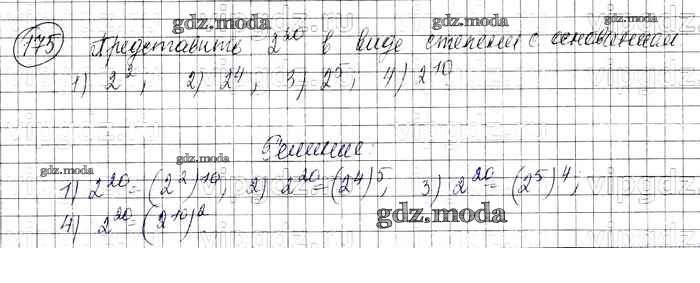 gdz.moda
175 Представить 2²⁰ в виде степени с основанием
1) 2², 2) 2⁴, 3) 2⁵, 4) 2¹⁰
gdz.moda
Решение
gdz.moda gdz.moda
1) 2²⁰=(2²)¹⁰; 2) 2²⁰=(2⁴)⁵, 3) 2²⁰=(2⁵)⁴;
4) 2²⁰=(2¹⁰)²
gdz.moda